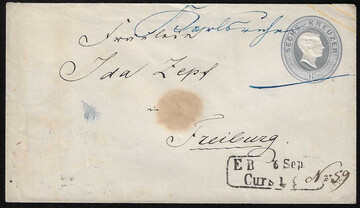 Karlsruhe
Fräulein
SECHS KREUZER
Ida Zepf
in
Freiburg.
E B 6 Sep
Curs 1
No 59